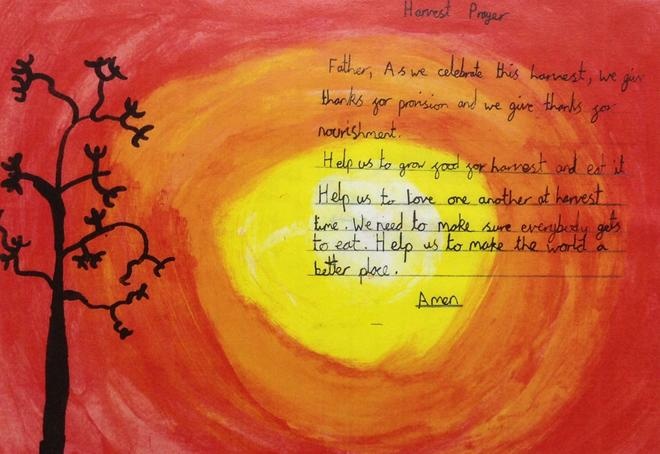 Harvest Prayer
Father, As we celebrate this harvest, we giv
thanks for provision and we give thanks for
nourishment.
Help us to grow food for harvest and eat it
Help us to love one another at harvest
time. We need to make sure everybody gets
to eat. Help us to make the world a
better place.
Amen